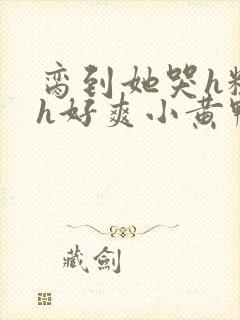 脔到她哭h粗
h好爽小黄鸭
藏劍